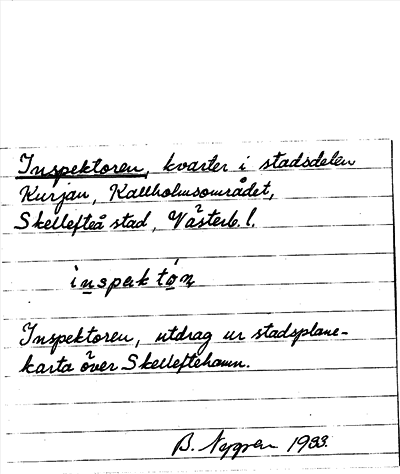 Inspektoren, kvarter i stadsdelen
Kurjan, Kallholmsområdet,
Skellefteå stad, Västerb. l.
inspektọ́ṇ
Inspektoren, utdrag ur stadsplane-
karta över Skelleftehamn.
B. Nygren 1933.